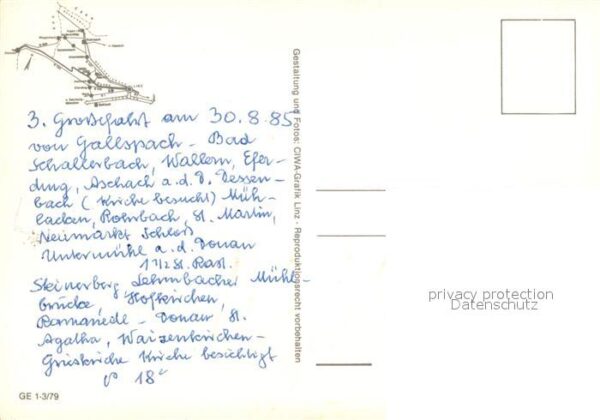 3. Großfahrt am 30.8.85
von Gallspach - Bad
Schallerbach, Wallern, Efer-
ding, Aschach a.d.D. Dessen-
bach (Kirche besucht) Müh-
lacken, Rohrbach, St. Martin,
Neumarkt Schloß
Untermühl a.d. Donau
1 1/2 St. Rast.
Steinerberg Lehmbacher Mühl-
brücke, Hofkirchen,
- Donau, St.
Agatha, Waizenkirchen-
Grieskirche Kirche besichtigt
18
Gestaltung und Fotos: CIWA-Grafik Linz - Reproduktionsrecht vorbehalten
privacy protection
Datenschutz
GE 1-3/79